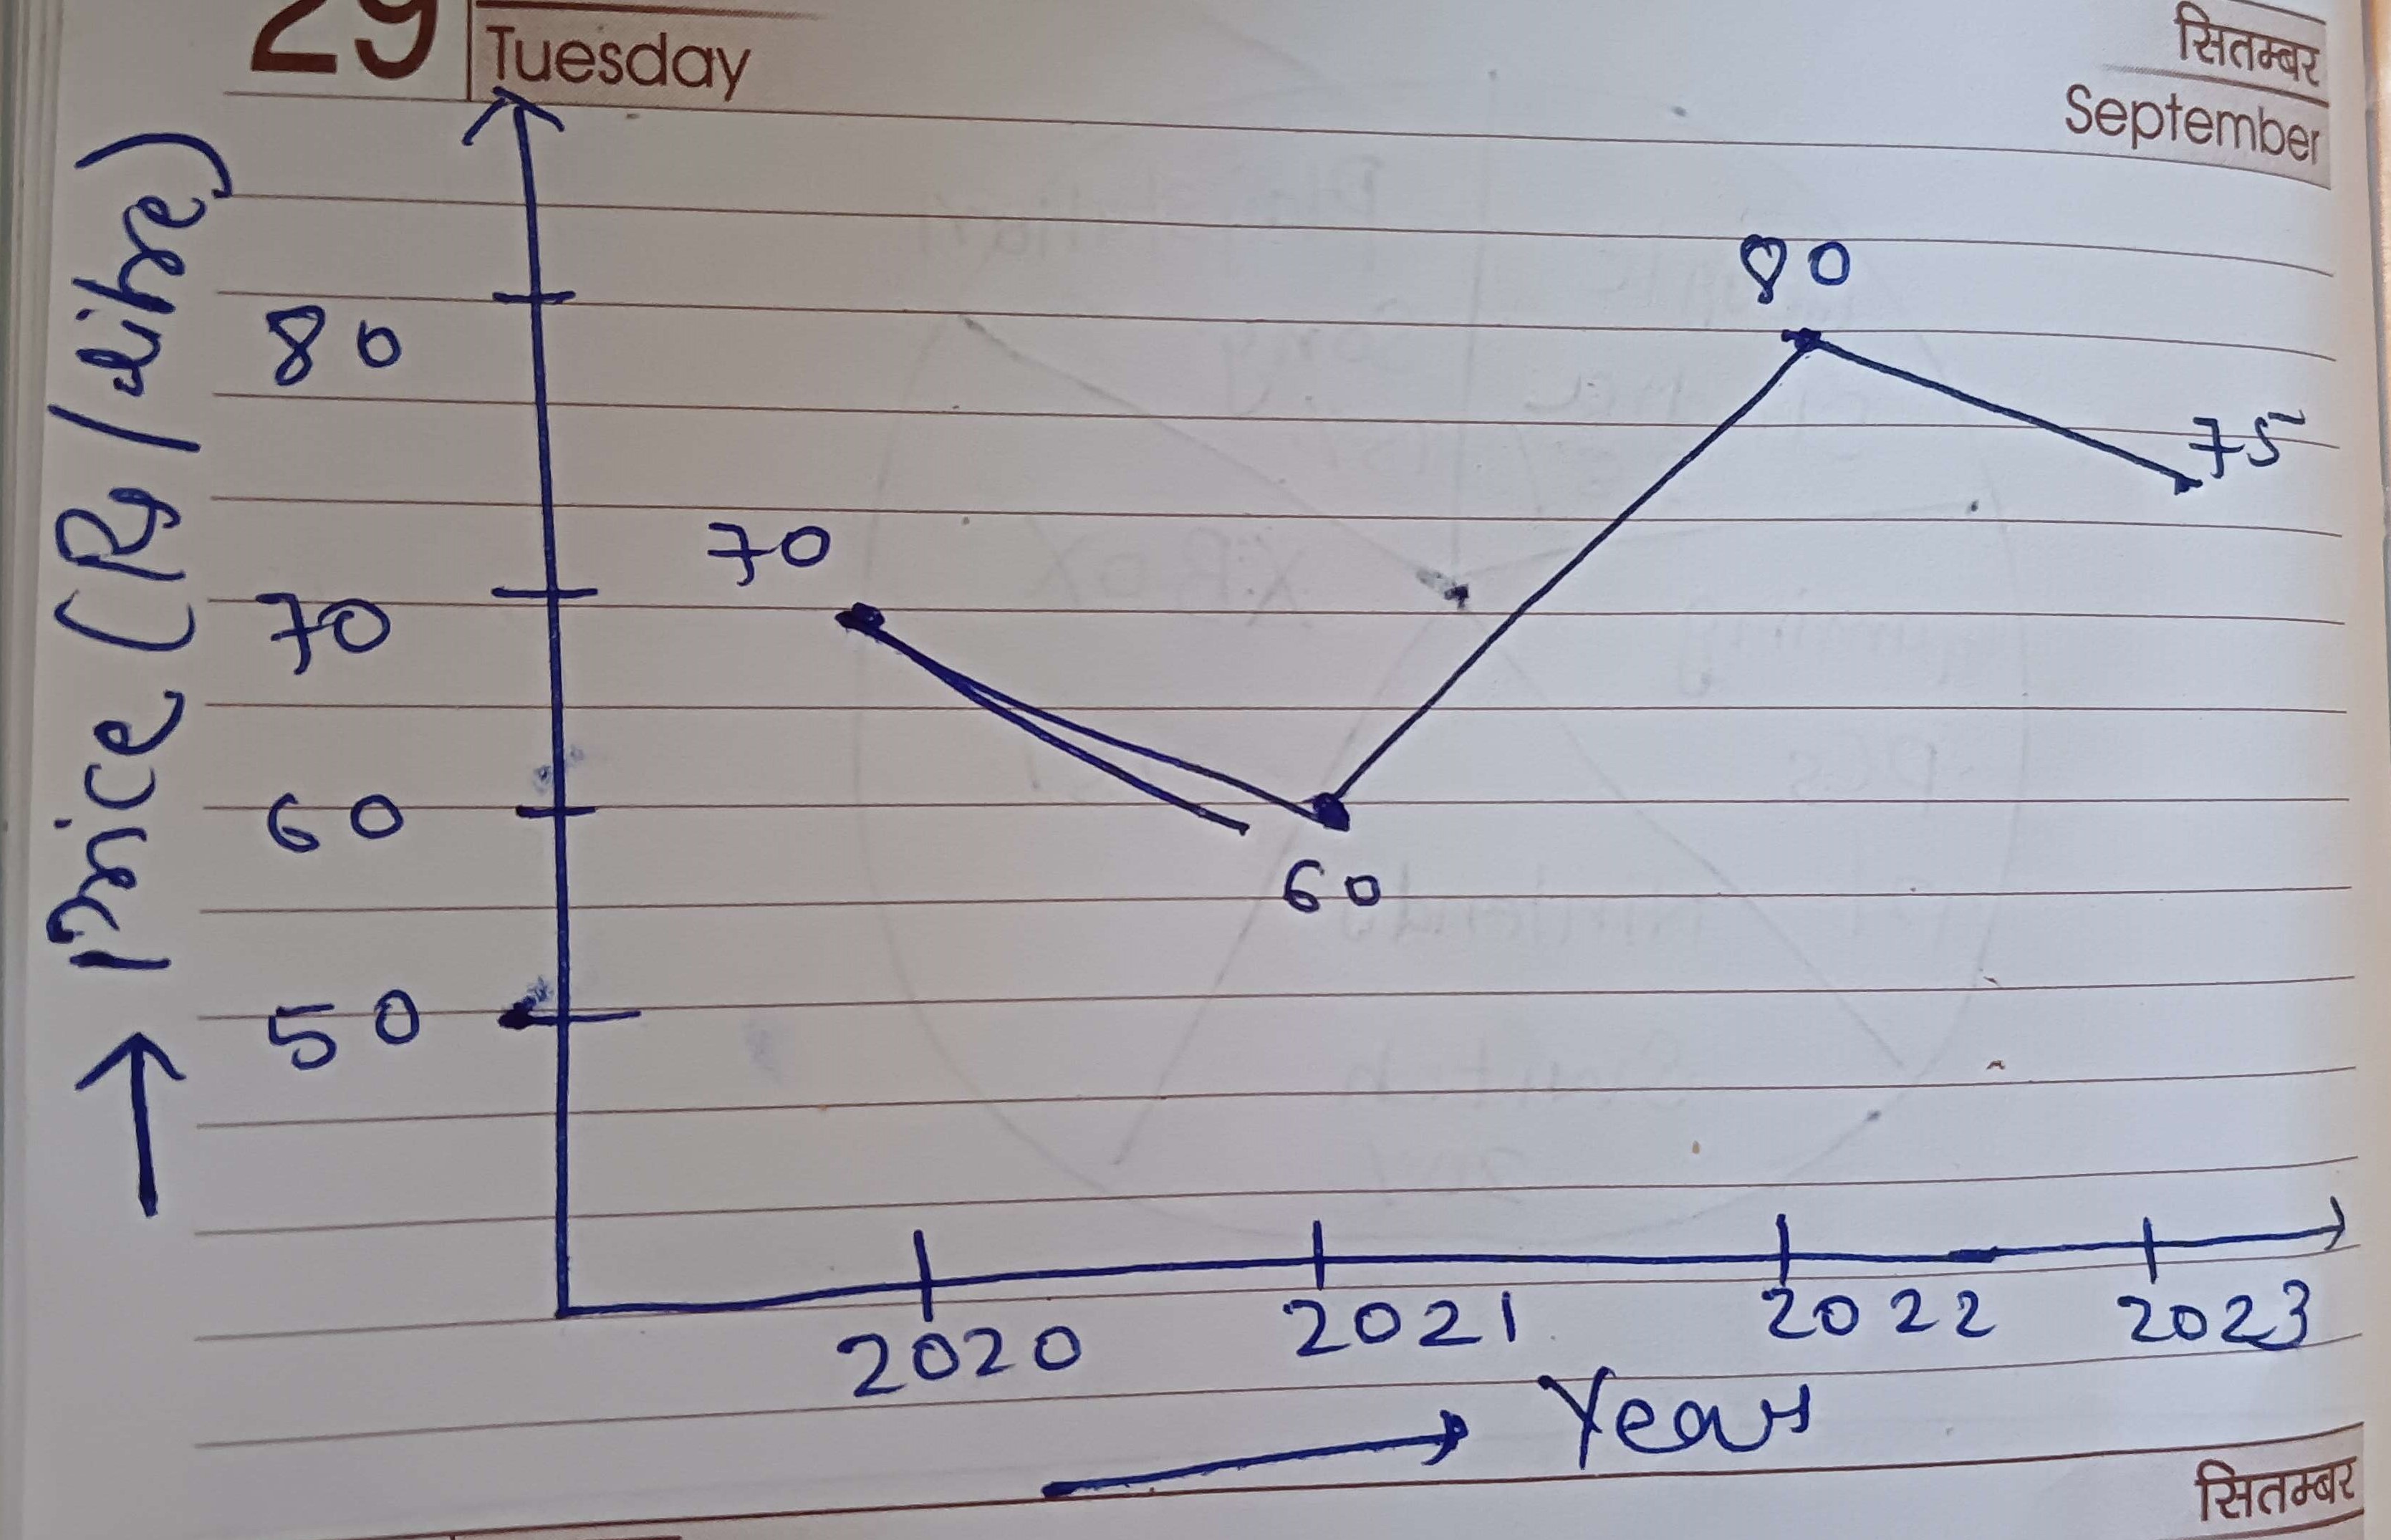 29 Tuesday
सितम्बर
September
Price (Rs/litre)
80
70
60
50
70
60
80
75
2020 2021 2022 2023
Years
सितम्बर